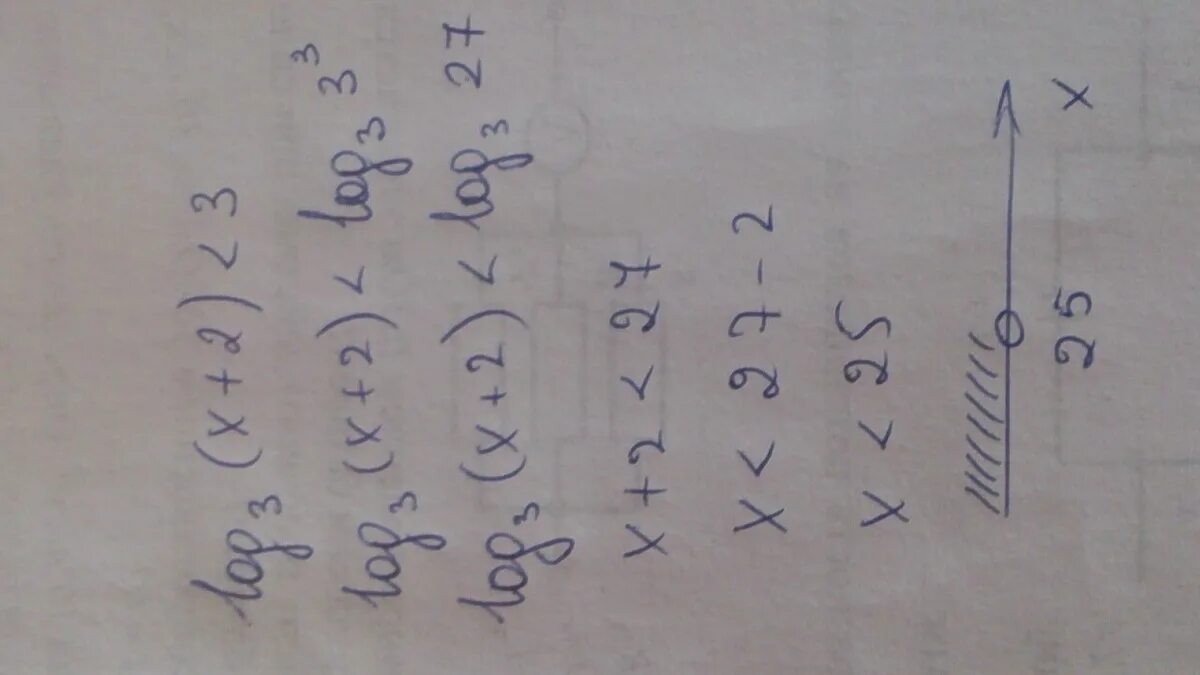 log₃ (x+2) < 3
log₃ (x+2) < log₃ 3³
log₃ (x+2) < log₃ 27
x+2 < 27
x < 27-2
x < 25
25 x